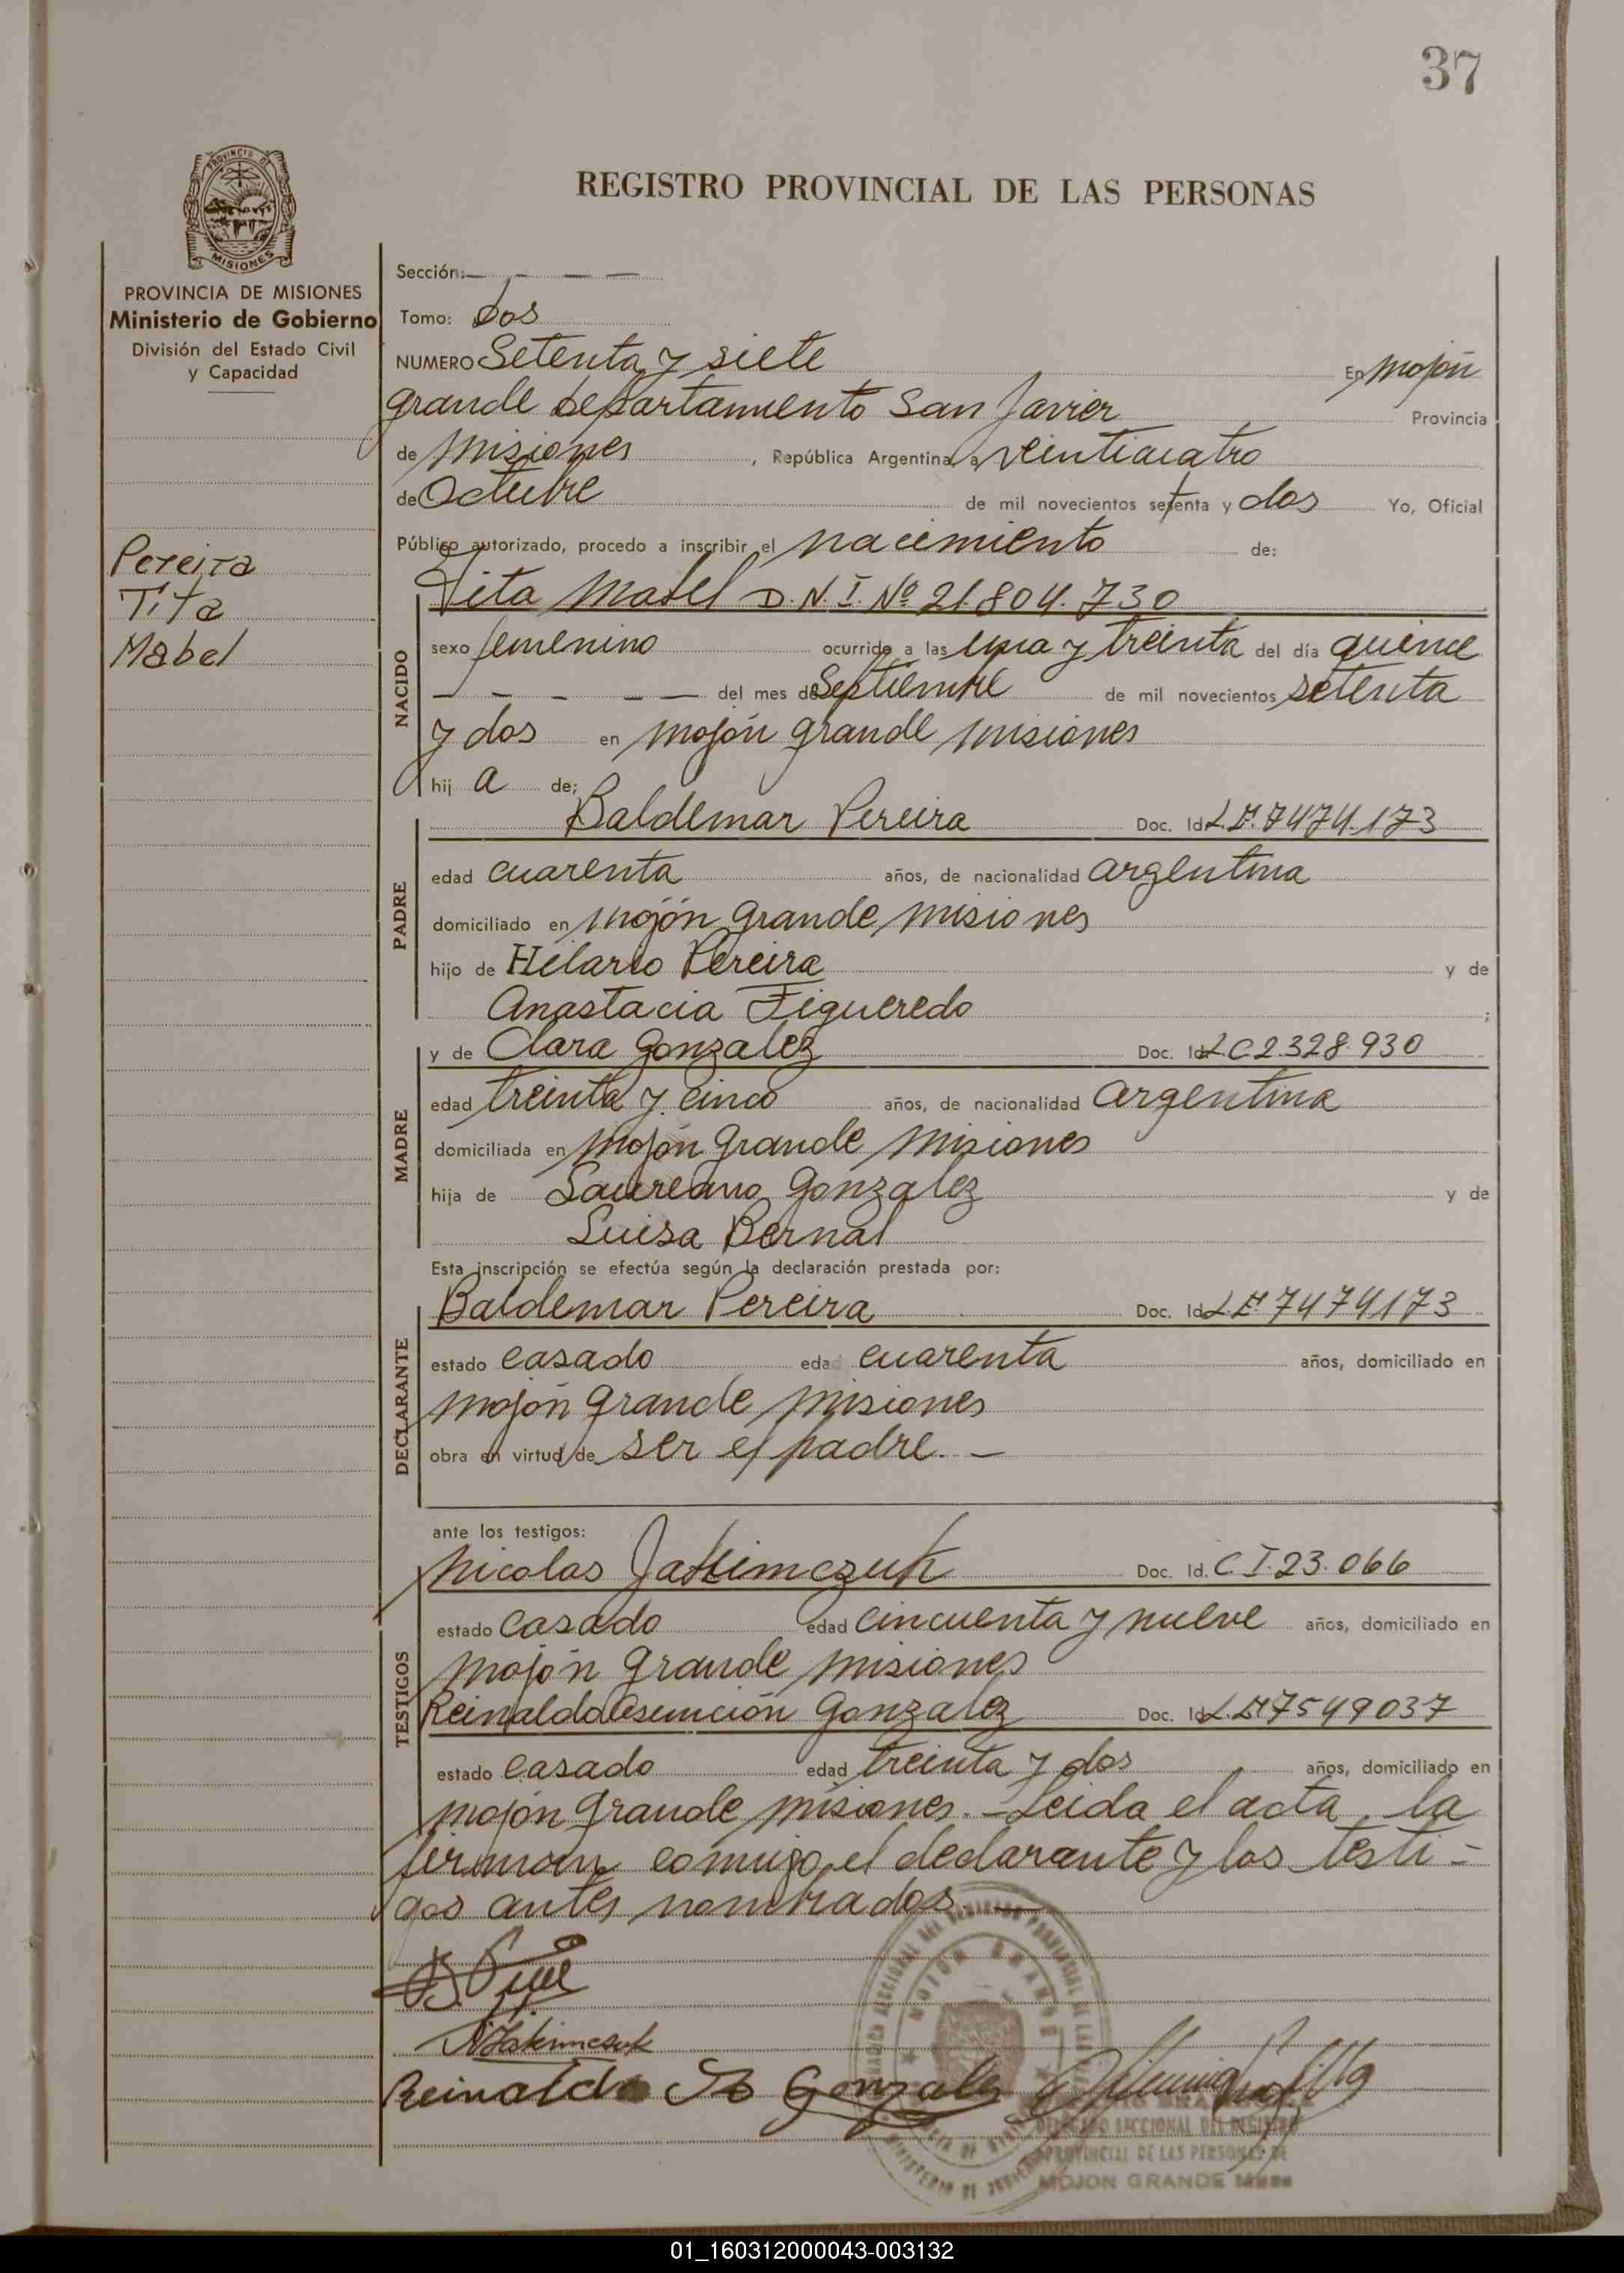 37
REGISTRO PROVINCIAL DE LAS PERSONAS
PROVINCIA DE
MISIONES
PROVINCIA DE MISIONES
Ministerio de Gobierno
División del Estado Civil
y Capacidad
Pereira
Tita
Mabel
Sección: - - - -
Tomo: Dos
NUMERO Setenta y siete En Mojón
grande departamento San Javier Provincia
de Misiones, República Argentina, a veinticuatro
de Octubre de mil novecientos setenta y dos Yo, Oficial
Público autorizado, procedo a inscribir el nacimiento de:
Tita Mabel D.N.I. Nº 21.804.730
NACIDO
sexo femenino ocurrido a las una y treinta del día quince
- - - - - del mes de Septiembre de mil novecientos setenta
y dos en mojón grande misiones
hij a de;
PADRE
Baldemar Pereira Doc. Id. L.E. 7474.173
edad cuarenta años, de nacionalidad argentina
domiciliado en mojón grande misiones
hijo de Hilario Pereira y de
Anastacia Figueredo ;
MADRE
y de Clara Gonzalez Doc. Id. L C 2.328.930
edad treinta y cinco años, de nacionalidad argentina
domiciliada en mojón grande misiones
hija de Laureano Gonzalez y de
Luisa Bernal
Esta inscripción se efectúa según la declaración prestada por:
DECLARANTE
Baldemar Pereira Doc. Id. L E 7474173
estado casado edad cuarenta años, domiciliado en
mojón grande misiones
obra en virtud de ser el padre. -
ante los testigos:
TESTIGOS
Nicolas Jakimczuk Doc. Id. C.I. 23.066
estado casado edad cincuenta y nueve años, domiciliado en
mojón grande misiones
Reinaldo Asención Gonzalez Doc. Id. L.E 7549037
estado casado edad treinta y dos años, domiciliado en
mojón grande misiones. - Leida el acta, la
firman conmigo, el declarante y los testi-
gos antes nombrados. -
N Jakimczuk
Reinaldo A Gonzalez
DELEGADO SECCIONAL DEL REGISTRO
PROVINCIAL DE LAS PERSONAS DE
MOJON GRANDE
01_160312000043-003132